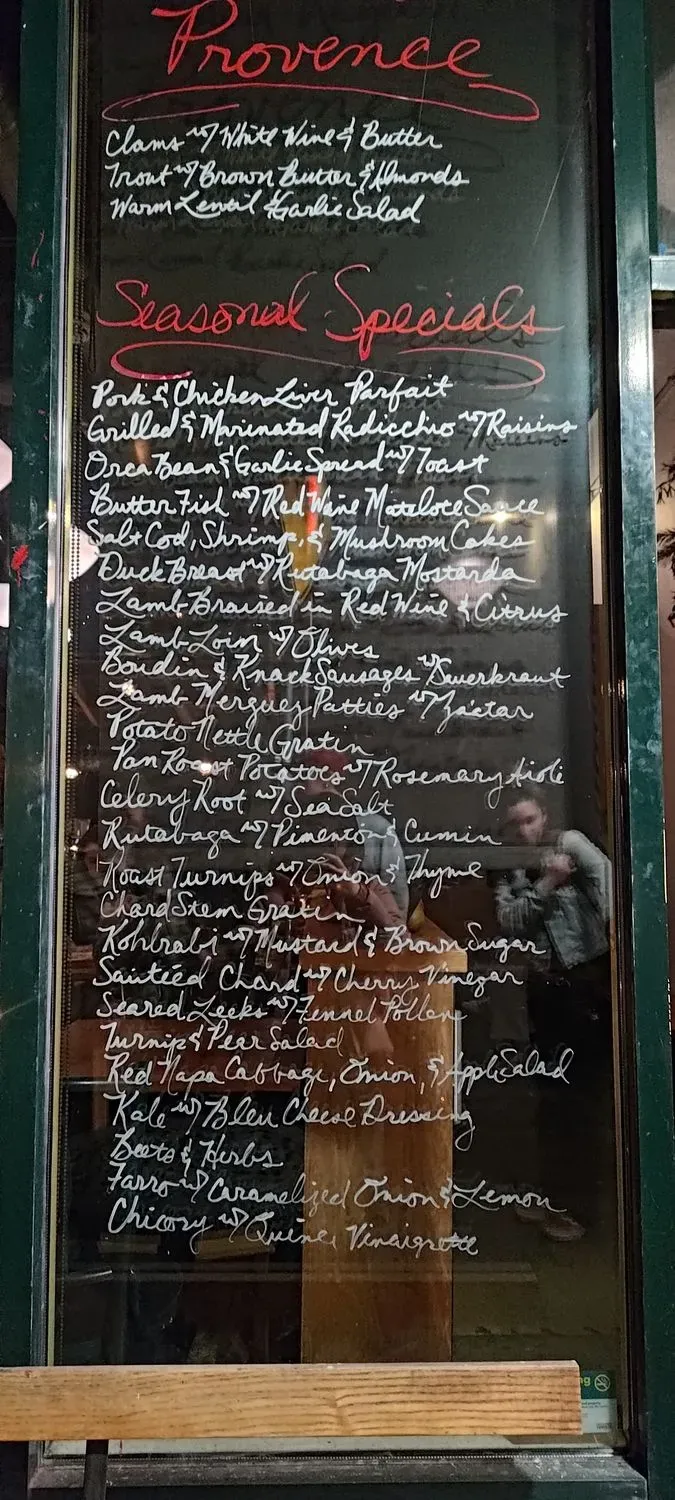 Provence
Clams w/ White Wine & Butter
Trout w/ Brown Butter & Almonds
Warm Lentil & Garlic Salad
Seasonal Specials
Pork & Chicken Liver Parfait
Grilled & Marinated Radicchio w/ Raisins
Orca Bean & Garlic Spread w/ Toast
Butter Fish w/ Red Wine Matelote Sauce
Salt Cod, Shrimp, & Mushroom Cakes
Duck Breast w/ Rutabaga Mostarda
Lamb Braised in Red Wine & Citrus
Lamb Loin w/ Olives
Boudin & Knack Sausages w/ Sauerkraut
Lamb Merguez Patties w/ Za'atar
Potato Nettle Gratin
Pan Roast Potatoes w/ Rosemary Aioli
Celery Root w/ Sea Salt
Rutabaga w/ Pimenton & Cumin
Roast Turnips w/ Onion & Thyme
Chard Stem Gratin
Kohlrabi w/ Mustard & Brown Sugar
Sautéed Chard w/ Cherry Vinegar
Seared Leeks w/ Fennel Pollen
Turnip & Pear Salad
Red Napa Cabbage, Onion, & Apple Salad
Kale w/ Bleu Cheese Dressing
Beets & Herbs
Farro w/ Caramelized Onion & Lemon
Chicory w/ Quince Vinaigrette